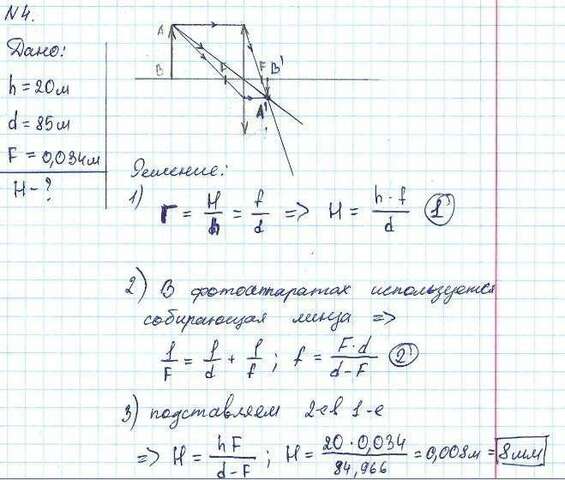 N 4.
Дано:
h = 20м
d = 85м
F = 0,034м
H - ?
A
B
F
F
B'
A'
Решение:
1) Г = H/h = f/d => H = h·f/d (1)
2) В фотоаппаратах используется
собирающая линза =>
1/F = 1/d + 1/f ; f = F·d/d-F (2)
3) подставляем 2-ев 1-е
=> H = hF/d-F ; H = 20·0,034/84,966 = 0,008м = 8мм